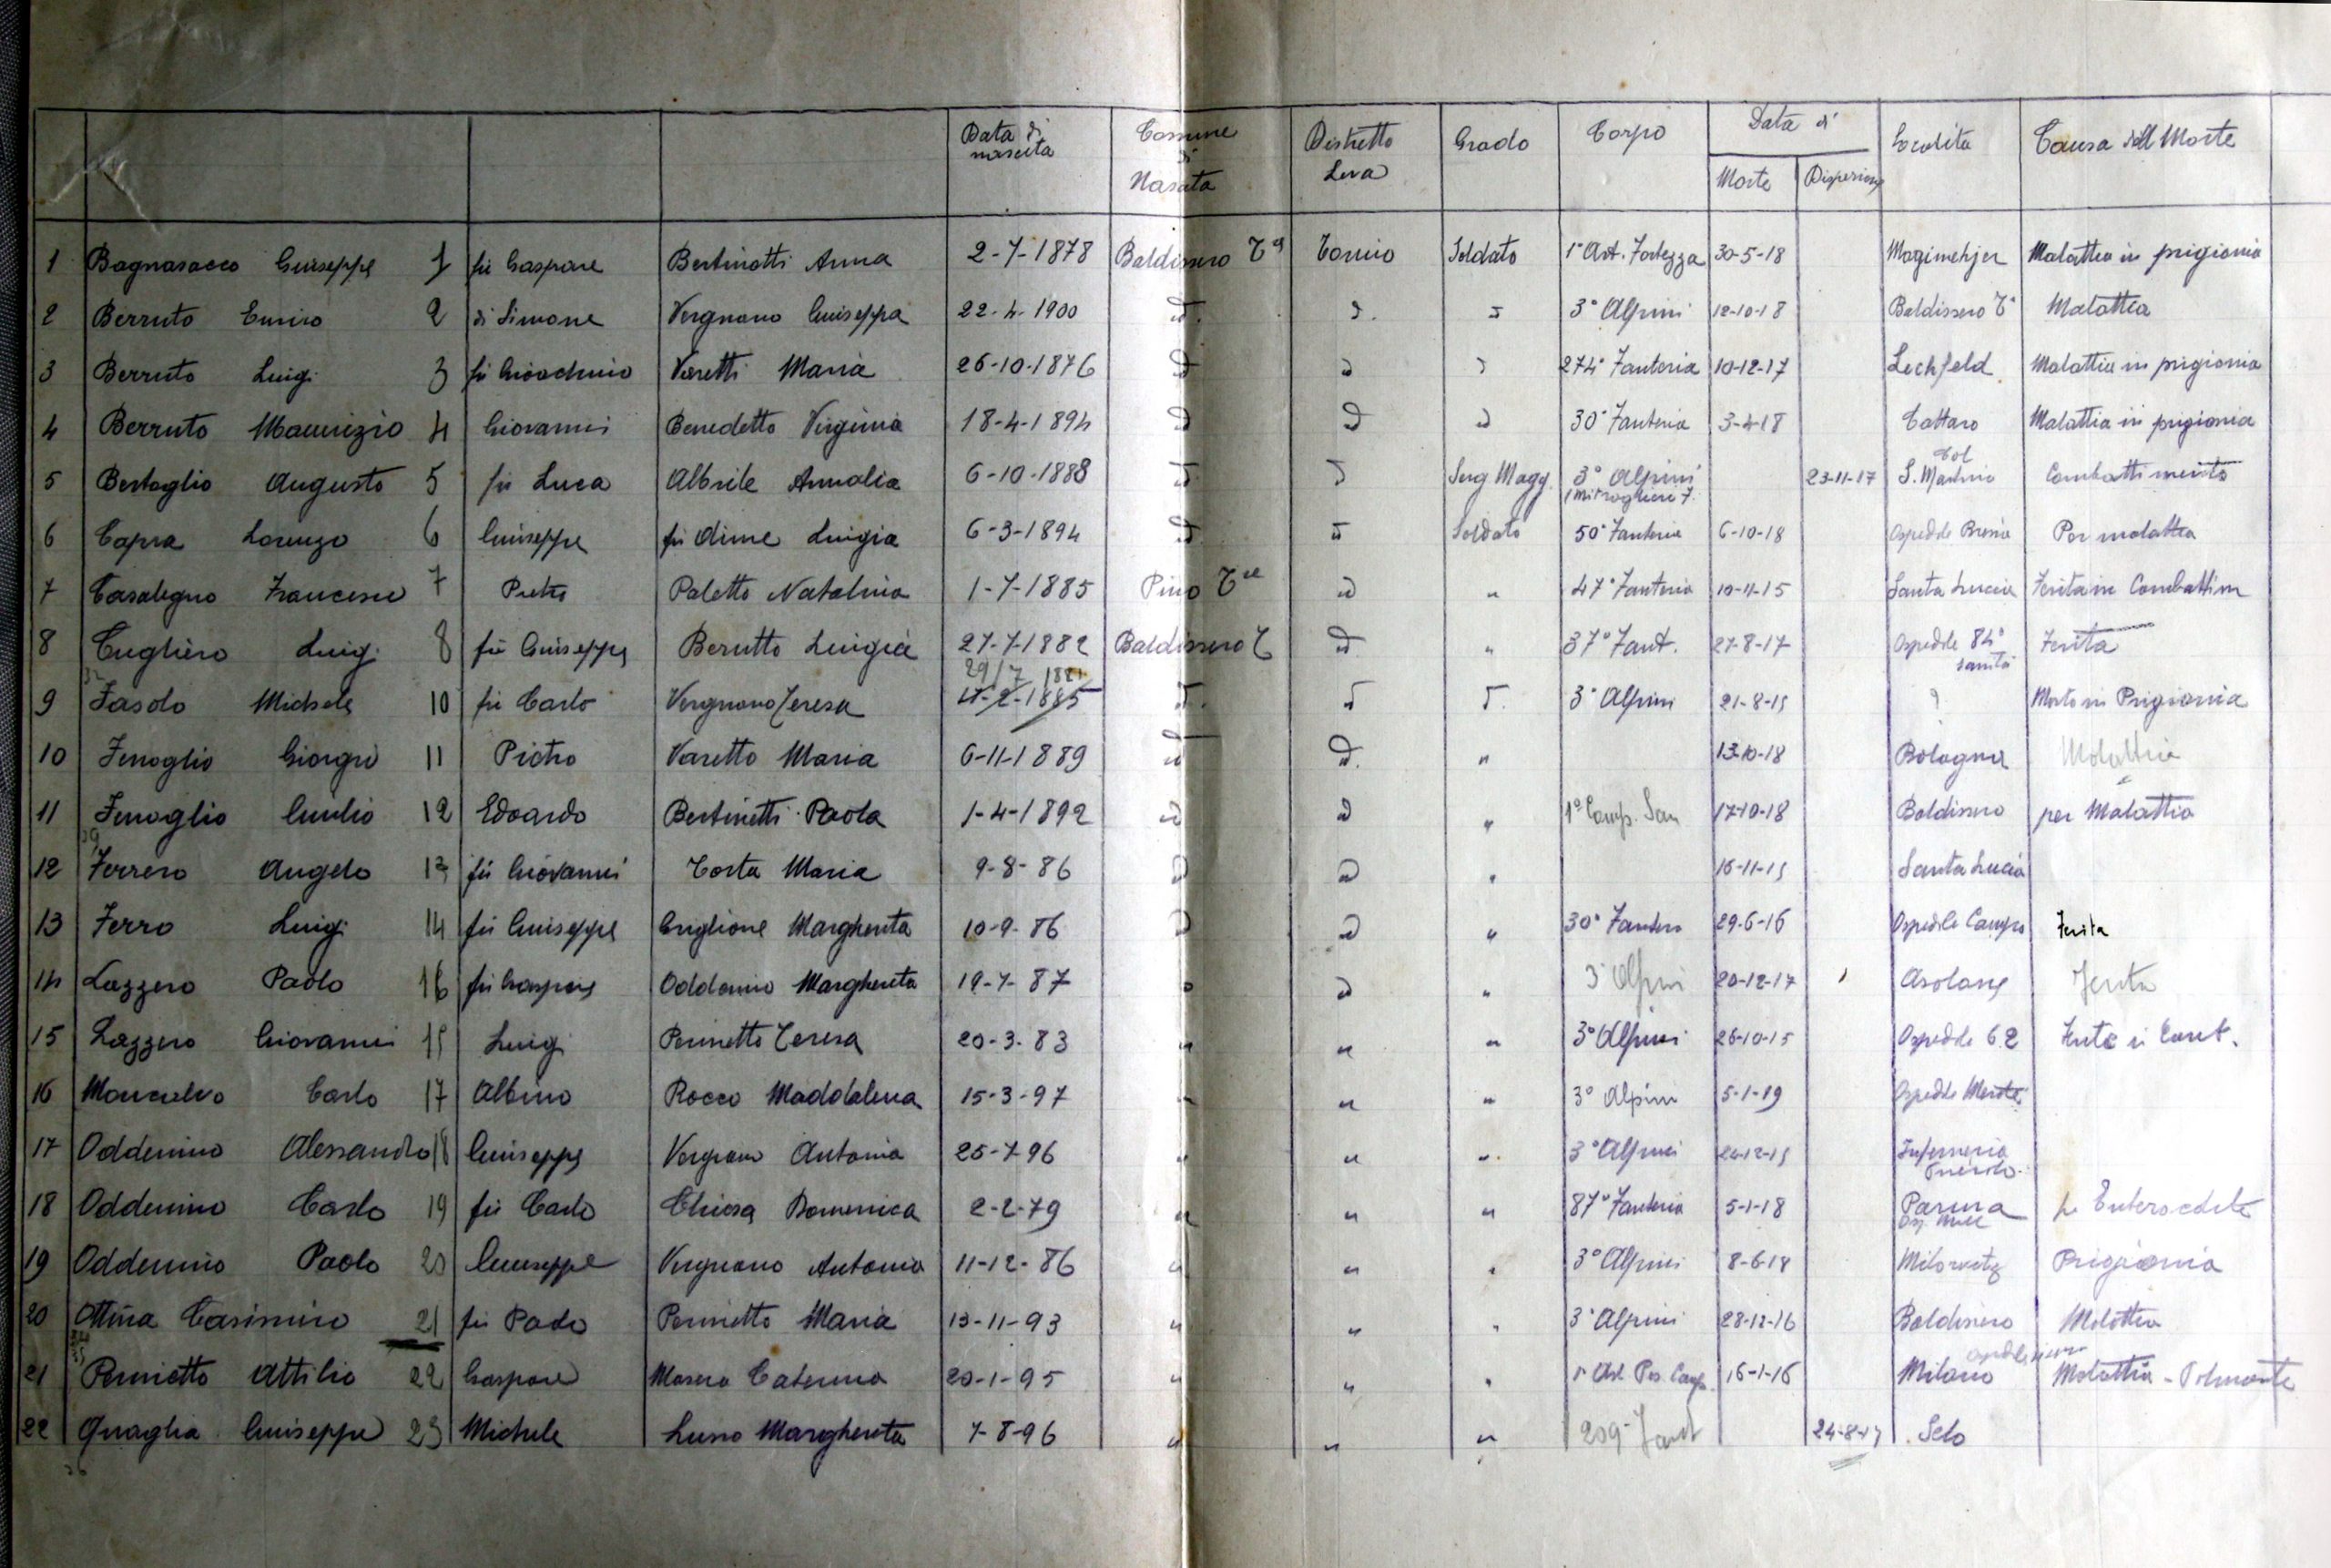 Data di nascita Comune di Nascita Distretto Leva Grado Corpo Data di Località Causa della Morte
Morte Dispersione
1 Bagnasacco Giuseppe 1 fu Gaspare Bertinetti Anna 2-7-1878 Baldissero T. Torino Soldato 1° Art. Fortezza 30-5-18 Malattia in prigionia
2 Berruto Enrico 2 di Simone Vergnano Giuseppa 22-4-1900 id. id. id. 3° Alpini 12-10-18 Baldissero T. Malattia
3 Berruto Luigi 3 fu Gioachino Varetti Maria 26-10-1876 id id id 274° Fanteria 10-12-17 Lechfeld Malattia in prigionia
4 Berruto Maurizio 4 Giovanni Benedetto Virginia 18-4-1894 id id id 30° Fanteria 3-4-18 Cattaro Malattia in prigionia
5 Bertaglio Augusto 5 fu Luca Albrile Annalia 6-10-1888 id id Serg Magg. 3° Alpini 23-11-17 Col S. Martino Combattimento
6 Capra Lorenzo 6 Giuseppe fu Aime Luigia 6-3-1894 id id Soldato 50° Fanteria 6-10-18 Ospedale Per malattia
7 Casalegno Francesco 7 Pietro Paletto Natalina 1-7-1885 Pino T.se id " 47° Fanteria 10-11-15 Santa Lucia Ferita in Combattim
8 Cugliero Luigi 8 fu Giuseppe Berutto Luigia 27-7-1882 Baldissero T id " 37° Fant. 27-8-17 Ospedale 84° sanità Ferita
29/7 1881
9 Fasolo Michele 10 fu Carlo Vergnano Teresa id. id id. 3° Alpini 21-8-15 ? Morto in Prigionia
10 Fenoglio Giorgio 11 Pietro Varetto Maria 6-11-1889 id id. " 13-10-18 Bologna Malattia
11 Fenoglio Giulio 12 Edoardo Bertinetti Paola 1-4-1892 id id " 1° Comp. San 17-10-18 Baldissero per Malattia
12 Ferrero Angelo 13 fu Giovanni Torta Maria 9-8-86 id id " 16-11-15 Santa Lucia
13 Ferro Luigi 14 fu Giuseppe Griglione Margherita 10-9-86 id id " 30° Fanteria 29-6-16 Ospedale Campo Ferita
14 Lazzero Paolo 16 fu Gaspare Oddenino Margherita 19-7-87 id " 3° Alpini 20-12-17 Asolone Ferita
15 Lazzero Giovanni 15 Luigi Perinetto Teresa 20-3-83 " " " 3° Alpini 26-10-15 Ospedale 62 Ferita
16 Moncalvo Carlo 17 Albino Rocco Maddalena 15-3-97 " " " 3° Alpini 5-1-19 Ospedale
17 Oddenino Alessandro 18 Giuseppe Vergnano Antonia 25-7-96 " " " 3° Alpini Infermeria
18 Oddenino Carlo 19 fu Carlo Chiosa Domenica 2-2-79 " " " 87° Fanteria 5-1-18 Parma
19 Oddenino Paolo 20 Giuseppe Vergnano Antonia 11-12-86 " " " 3° Alpini 8-6-18 Prigionia
20 Ottina Casimiro 21 fu Paolo Perinetto Maria 13-11-93 " " " 3° Alpini 28-12-16 Baldissero Malattia
21 Perinetto Attilio 22 Gaspare Masera Caterina 20-1-95 " " " 16-1-16 Milano Malattia - Polmonite
22 Quaglia Giuseppe 23 Michele Lusso Margherita 7-8-96 " " " 209° Fant 24-8-17 Selo